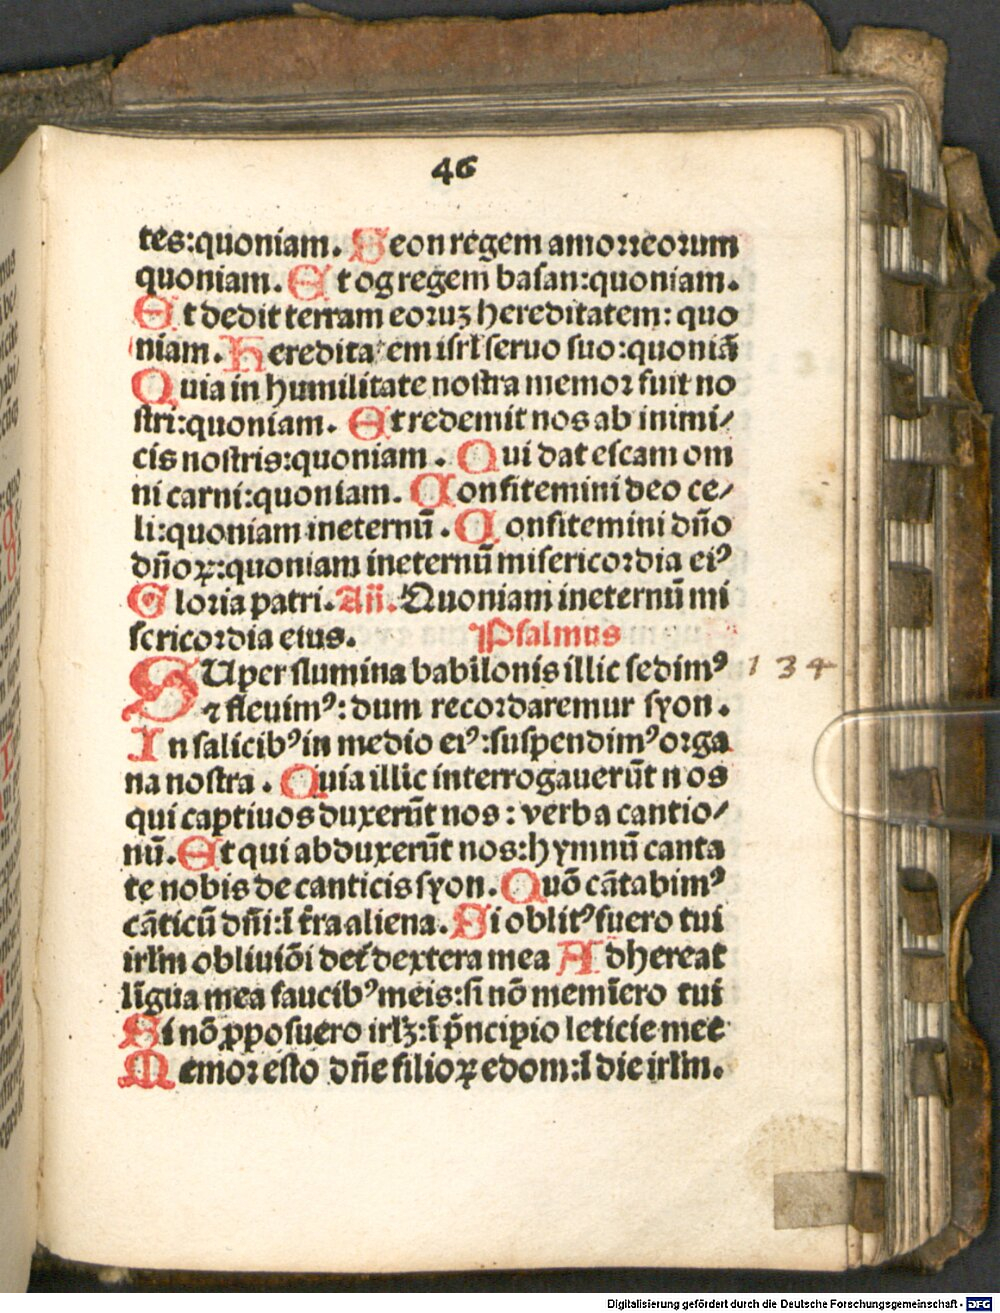 46
tes:quoniam. Seon regem amorreorum
quoniam. Et og regem basan:quoniam.
Et dedit terram eoruꝫ hereditatem: quo
niam. Hereditatem isrl̄ seruo suo:quoniā
Quia in humilitate nostra memor fuit no
stri:quoniam. Et redemit nos ab inimi/
cis nostris:quoniam. Qui dat escam om
ni carni:quoniam. Confitemini deo ce/
li:quoniam ineternū. Confitemini dn̄o
dn̄oꝝ:quoniam ineternū misericordia eiꝰ
Gloria patri. Añ. Quoniam ineternū mi
sericordia eius. Psalmus
SUper flumina babilonis illic sedimꝰ
⁊ fleuimꝰ: dum recordaremur syon.
In salicibꝰ in medio eiꝰ:suspendimꝰ orga
na nostra. Quia illic interrogauerūt nos
qui captiuos duxerūt nos: verba cantio/
nū. Et qui abduxerūt nos:hymnū canta
te nobis de canticis syon. Quō cātabimꝰ
cāticū dn̄i:ī t̄ra aliena. Si oblitꝰ fuero tui
irl̄m obliuiōi det̄ dextera mea Adhereat
līgua mea faucibꝰ meis:si nō memīero tui
Si nō ꝓposuero irlꝫ:ī pn̄cipio leticie mee
Memor esto dn̄e filioꝝ edom:ī die irl̄m.
134
Digitalisierung gefördert durch die Deutsche Forschungsgemeinschaft - DFG